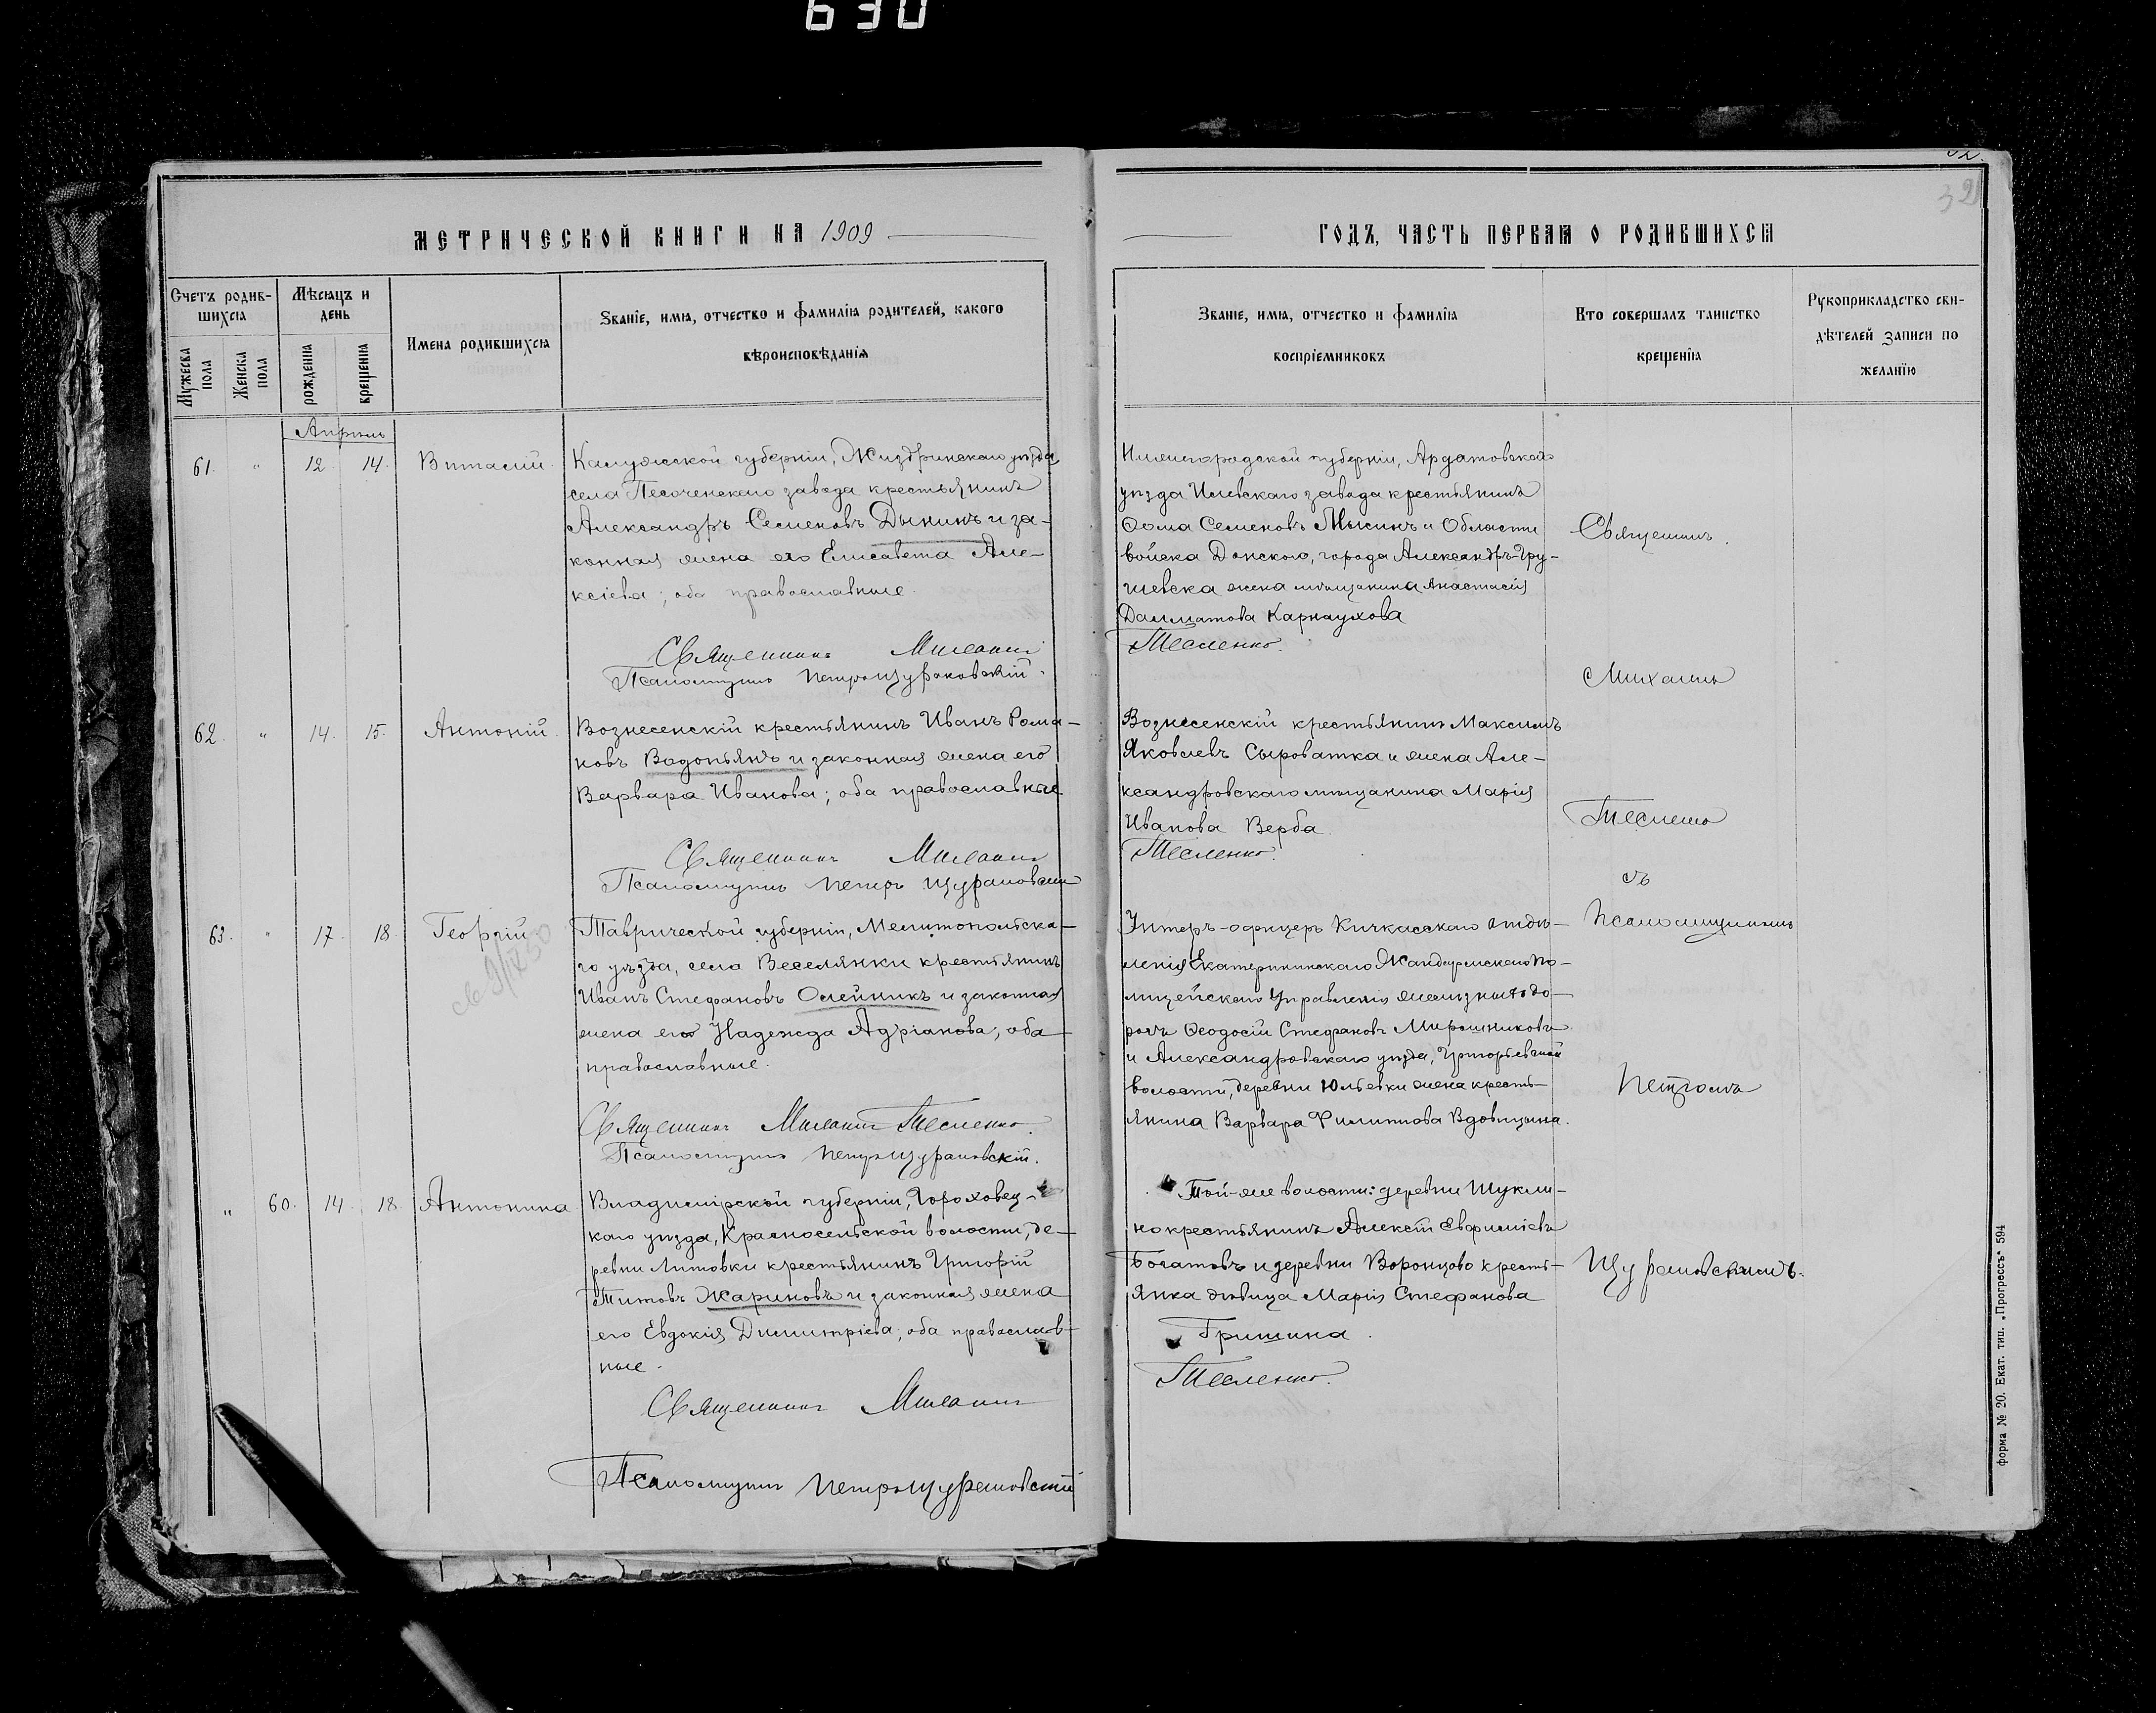 630
32.
32
МЕТРИЧЕСКОЙ КНИГИ НА 1909
ГОДЪ, ЧАСТЬ ПЕРВАЯ О РОДИВШИХСЯ
Счетъ родив-
шихся
Мужеска пола
Женска пола
Мѣсяцъ и
день
рожденія
крещенія
Имена родившихся
Званіе, имя, отчество и фамилія родителей, какого
вѣроисповѣданія
Званіе, имя, отчество и фамилія
воспріемниковъ
Кто совершалъ таинство
крещенія
Рукоприкладство сви-
дѣтелей записи по
желанію
Апрѣль
61. " 12. 14. Виталій.
Калужской губерніи, Жиздринскаго уѣзда,
села Песоченскаго завода крестьянинъ
Александръ Семеновъ Дынинъ и за-
конная жена его Елисавета Але-
ксіева; оба православные.
Священникъ Михаилъ
Псаломщикъ Петръ Щурановскій.
Нижегородской губерніи, Ардатовскаго
уѣзда Илевскаго завода крестьянинъ
Ѳома Семеновъ Мысинъ и Области
войска Донского, города Александръ-Гру-
шевска жена мѣщанина Анастасія
Далматова Карнаухова
Тесленко.
62. " 14. 15. Антоній.
Вознесенскій крестьянинъ Иванъ Рома-
новъ Водопьянъ и законная жена его
Варвара Иванова; оба православные
Священникъ Михаилъ
Псаломщикъ Петръ Щурановскій
Вознесенскій крестьянинъ Максимъ
Яковлевъ Сыроватка и жена Але-
ксандровскаго мѣщанина Марія
Иванова Верба.
Тесленко.
63. " 17. 18. Георгій
Таврической губерніи, Мелитопольска-
го уѣзда, села Веселянки крестьянинъ
Иванъ Стефановъ Олейникъ и законная
жена его Надежда Адріанова; оба
православные.
Священникъ Михаилъ Тесленко.
Псаломщикъ Петръ Щурановскій.
Унтеръ-офицеръ Кичкасскаго отдѣ-
ленія Екатерининскаго Жандармскаго По-
лицейскаго Управленія желѣзныхъ до-
рогъ Ѳеодосій Стефановъ Мирошниковъ
и Александровскаго уѣзда, Григорьевской
волости, деревни Юльевки жена кресть-
янина Варвара Филиппова Вдовицына.
" 60. 14. 18. Антонина
Владимірской губерніи, Гороховец-
каго уѣзда, Красносельской волости, де-
ревни Литовки крестьянинъ Григорій
Титовъ Жариновъ и законная жена
его Евдокія Димитріева; оба православ-
ные.
Священникъ Михаилъ
Псаломщикъ Петръ Щурановскій
Той-же волости: деревни Шукли-
но крестьянинъ Алексій Евфиміевъ
Богатовъ и деревни Воронцово кресть-
янка дѣвица Марія Стефанова
Гришина.
Тесленко.
Священникъ.
Михаилъ
Тесленко
съ
Псаломщикомъ
Петромъ
Щурановскимъ.
форма № 20. Екат. тип. „Прогрессъ" 594